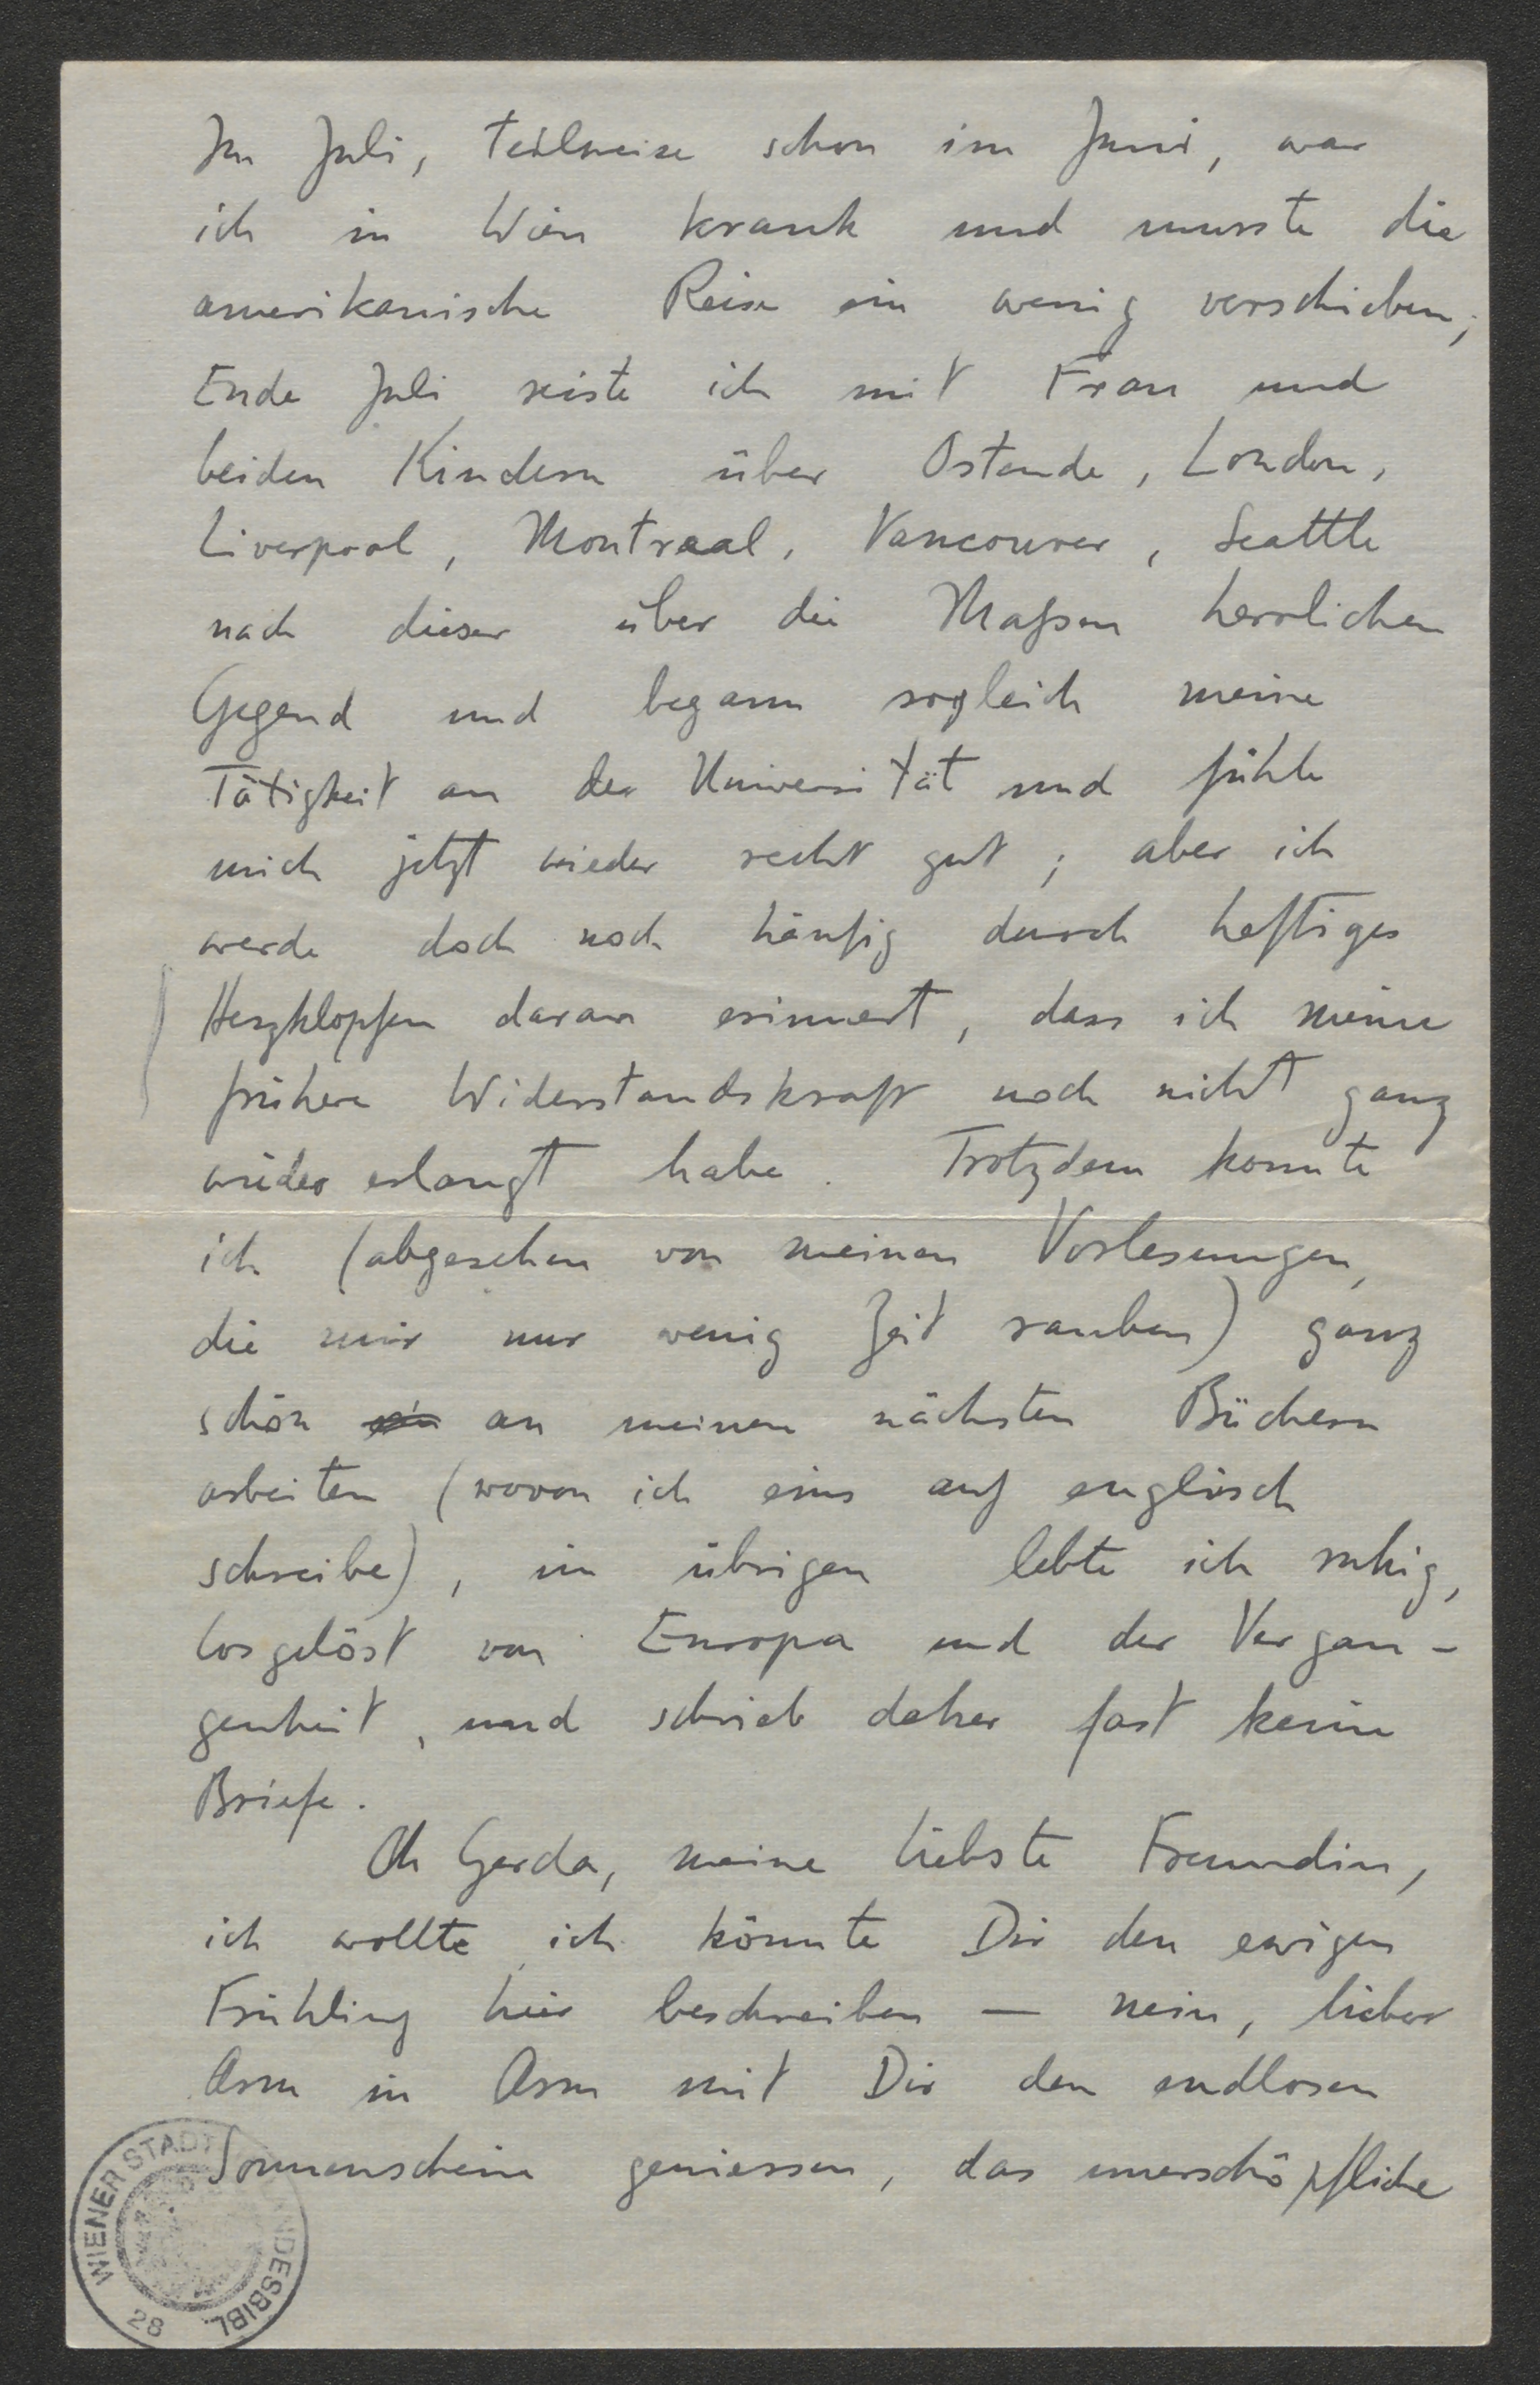 Im Juli, teilweise schon im Juni, war
ich in Wien krank und musste die
amerikanische Reise ein wenig verschieben;
Ende Juli reiste ich mit Frau und
beiden Kindern über Ostende, London,
Liverpool, Montraal, Vancouver, Seattle
nach dieser über die Maßen herrlichen
Gegend und begann sogleich meine
Tätigkeit an der Universität und fühle
mich jetzt wieder recht gut; aber ich
werde doch noch häufig durch heftiges
Herzklopfen daran erinnert, dass ich meine
frühere Widerstandskraft noch nicht ganz
wieder erlangt habe. Trotzdem konnte
ich (abgesehen von meinen Vorlesungen,
die mir nur wenig Zeit rauben) ganz
schön an meinen nächsten Büchern
arbeiten (wovon ich eins auf englisch
schreibe), im übrigen lebte ich ruhig,
losgelöst von Europa und der Vergan-
genheit, und schrieb daher fast keine
Briefe.
Oh Gerda, meine liebste Freundin,
ich wollte, ich könnte Dir den ewigen
Frühling hier beschreiben — nein, lieber
Arm in Arm mit Dir den endlosen
Sonnenschein geniessen, das unerschöpfliche
WIENER STADT NDESBIBL.
28